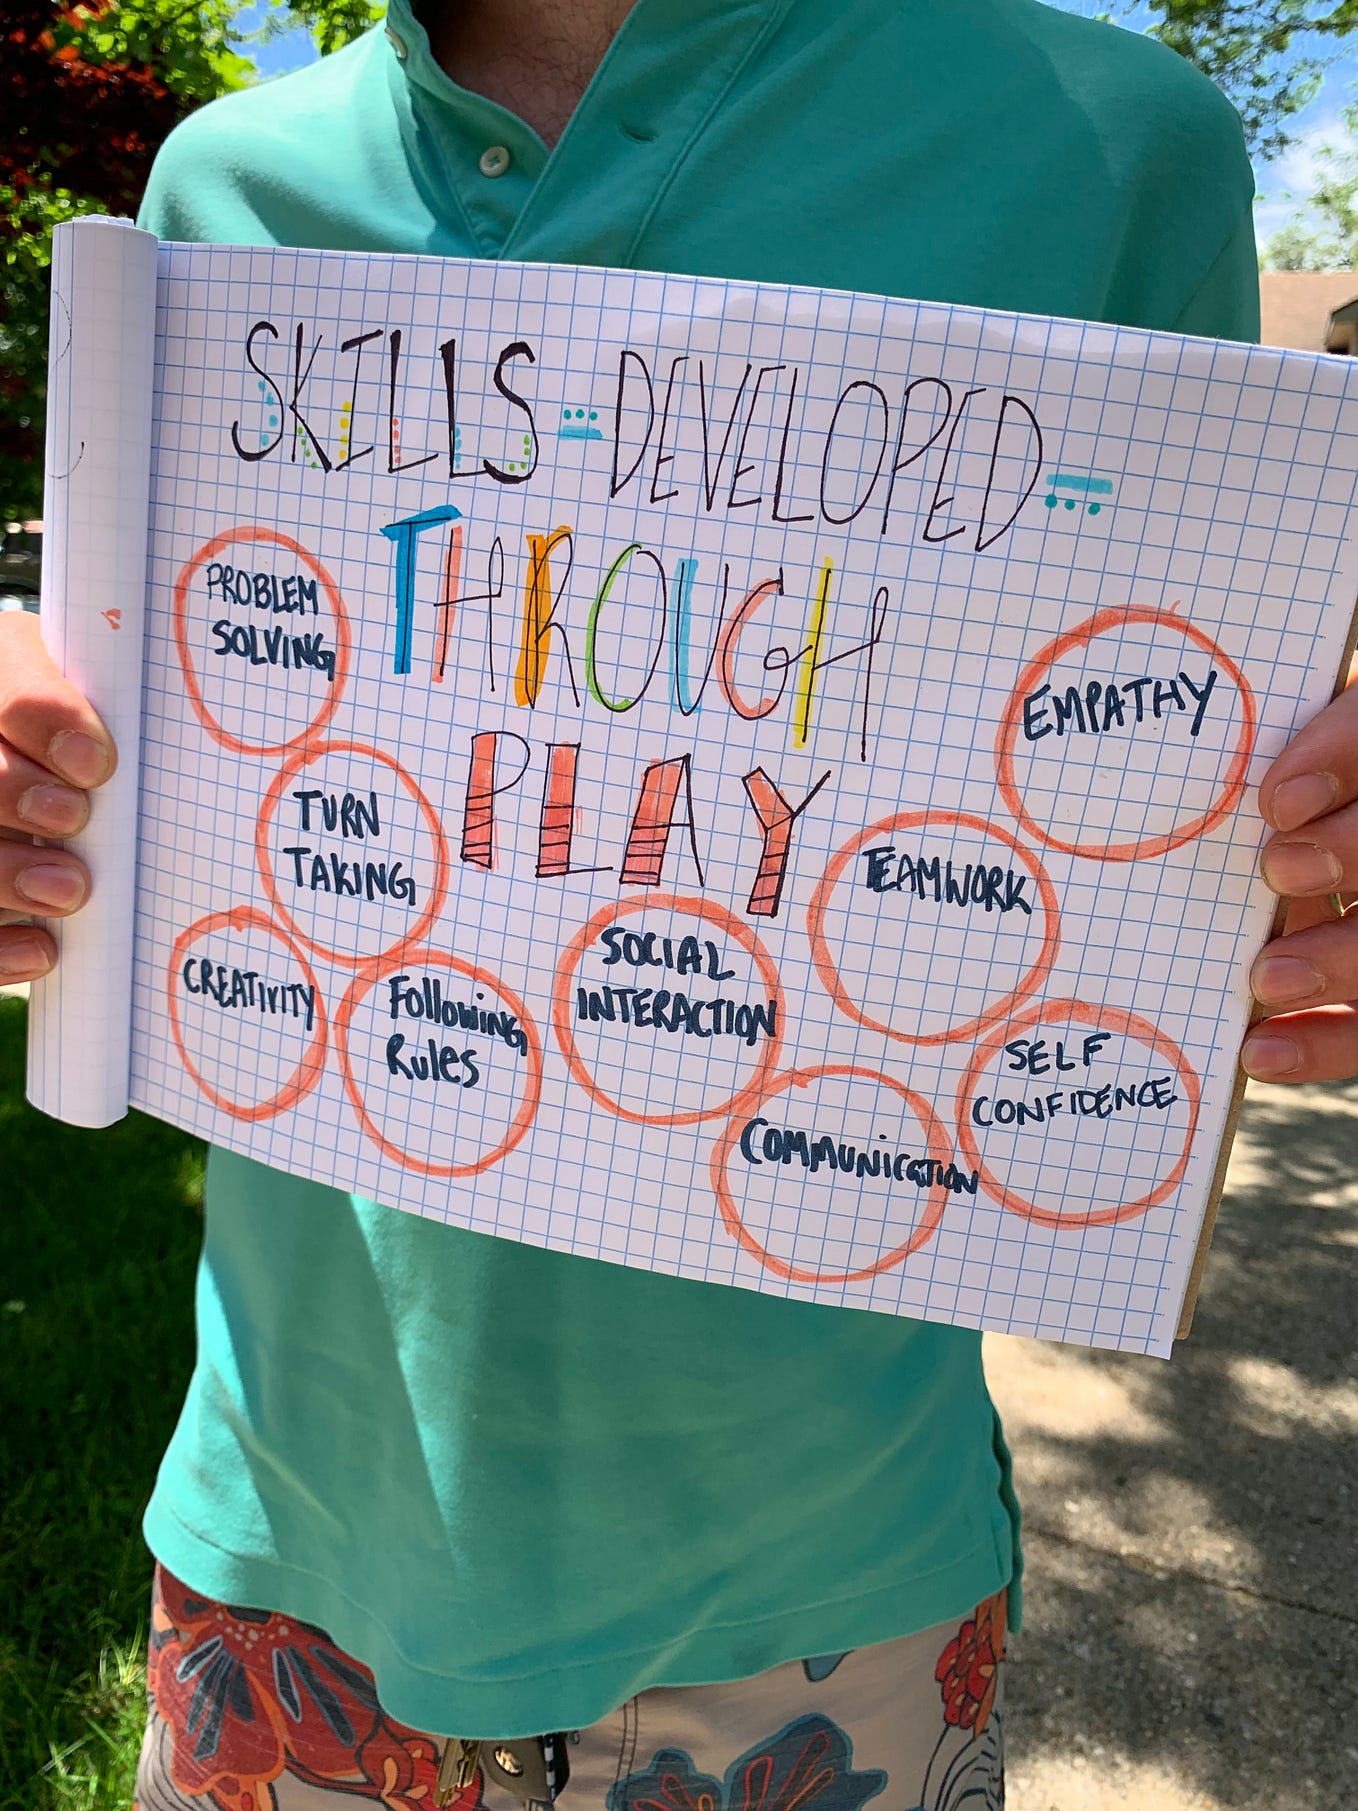 SKILLS = DEVELOPED =
THROUGH
PLAY
PROBLEM
SOLVING
TURN
TAKING
CREATIVITY
Following
Rules
SOCIAL
INTERACTION
TEAMWORK
EMPATHY
SELF
CONFIDENCE
COMMUNICATION